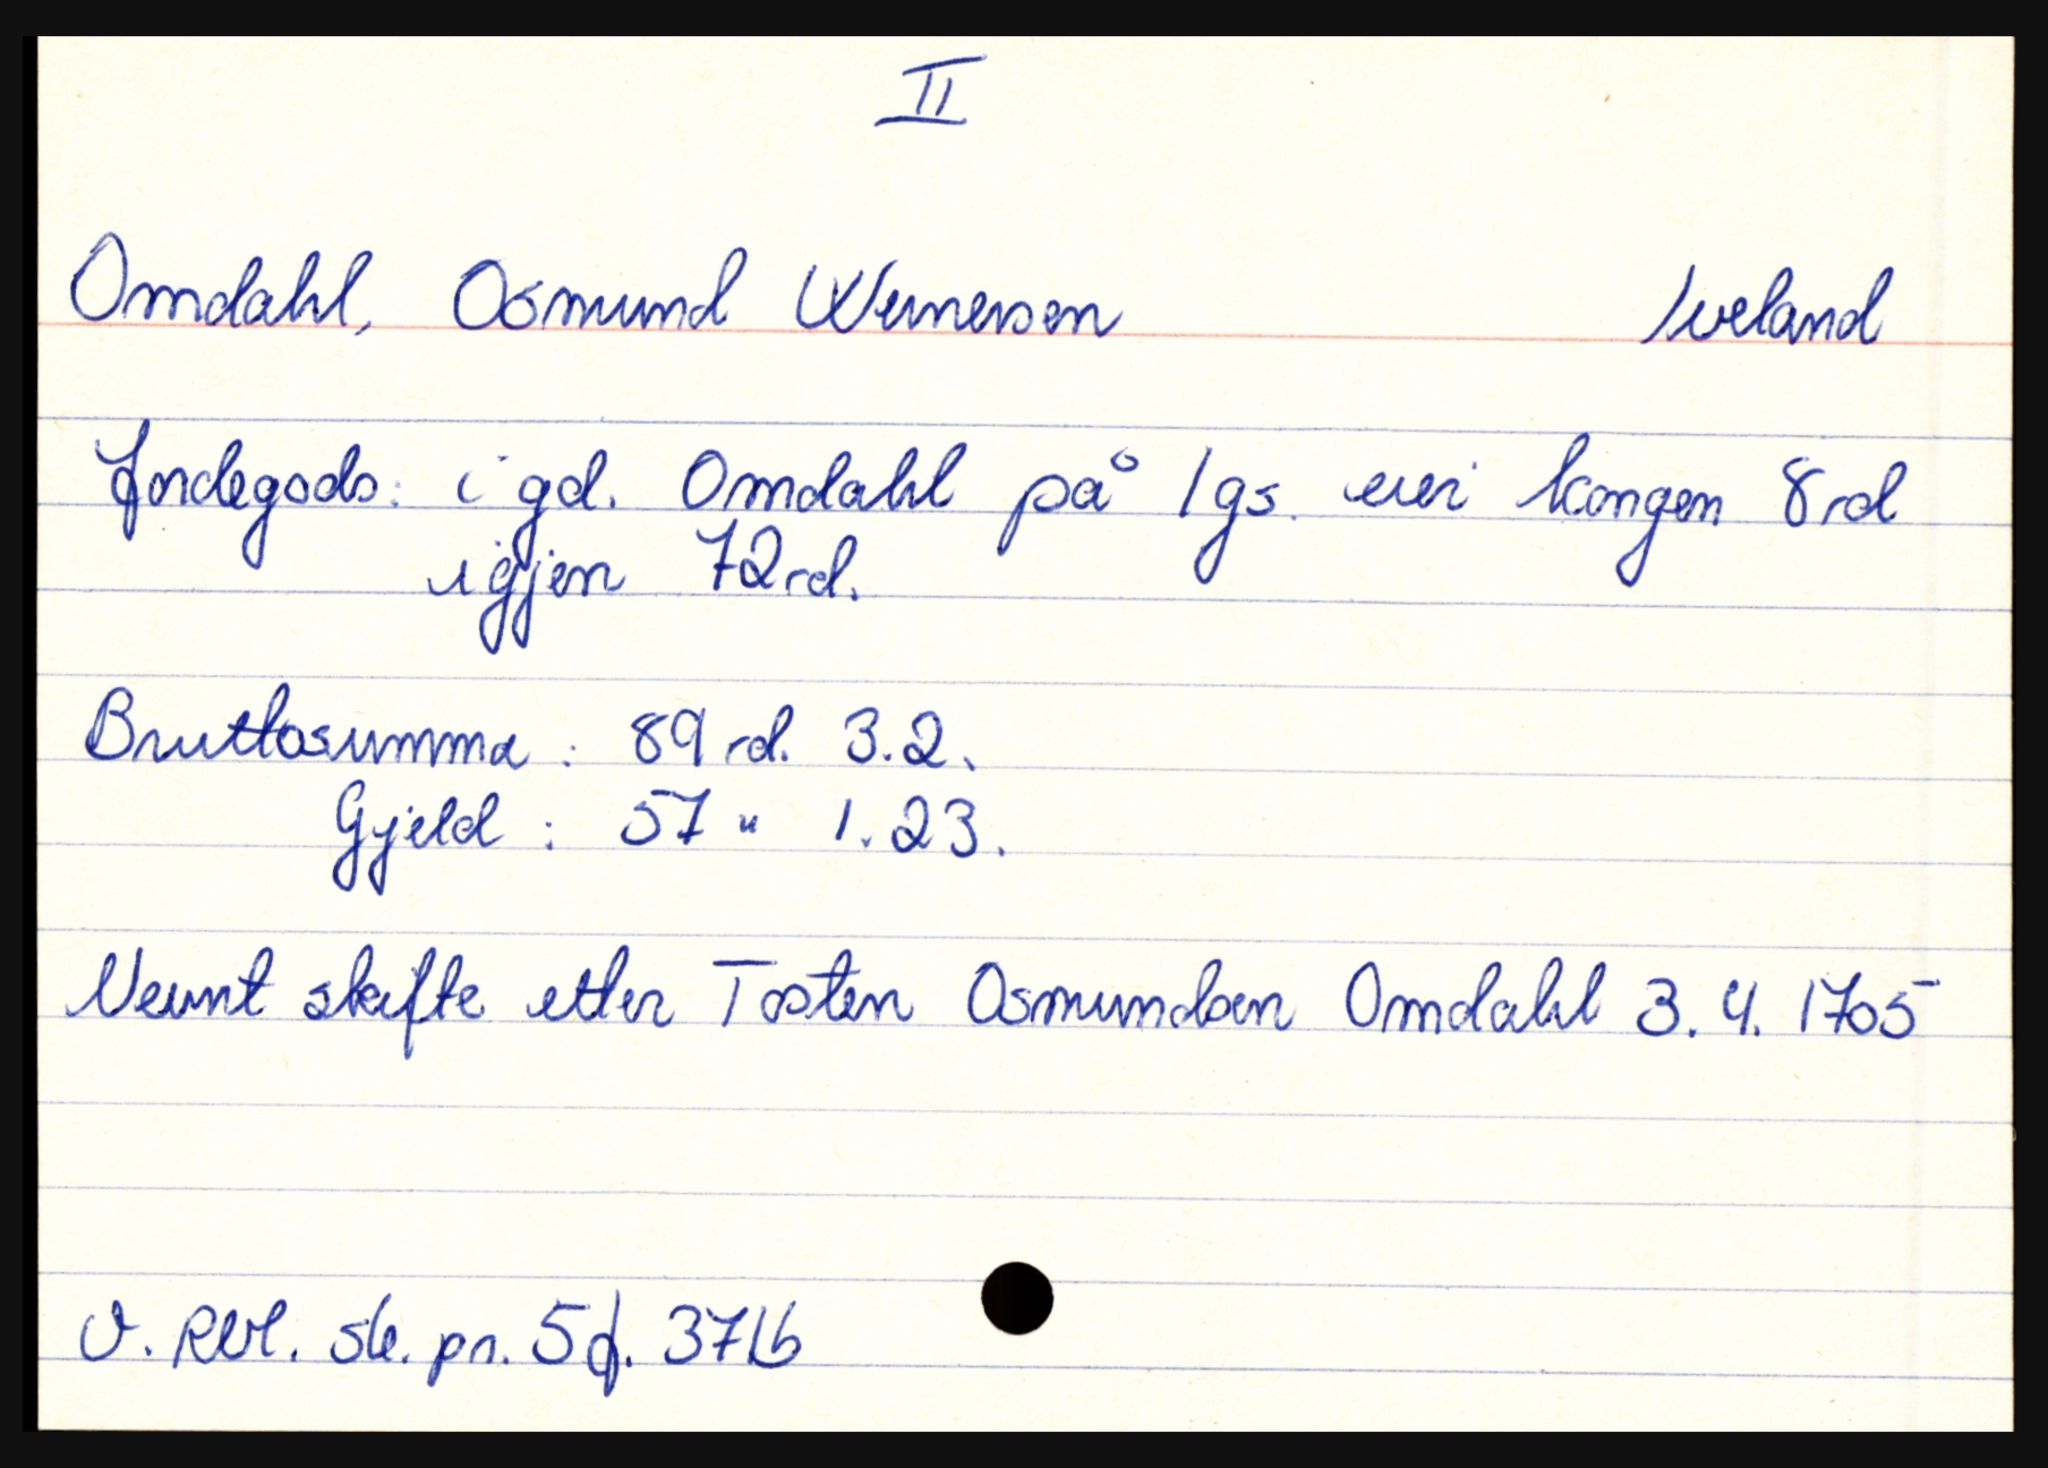 II
Omdahl, Osmund Wernersen Iveland
Jordegods: i gd. Omdahl på 1 gs. eier kongen 8 rd
igjen 72 rd.
Bruttosumma: 89 rd. 3.2.
Gjeld: 57 " 1.23.
Nevnt skifte etter Tosten Osmundsen Omdahl 3. 4. 1705
V. Rbl. sk. pr. 5 f. 371b